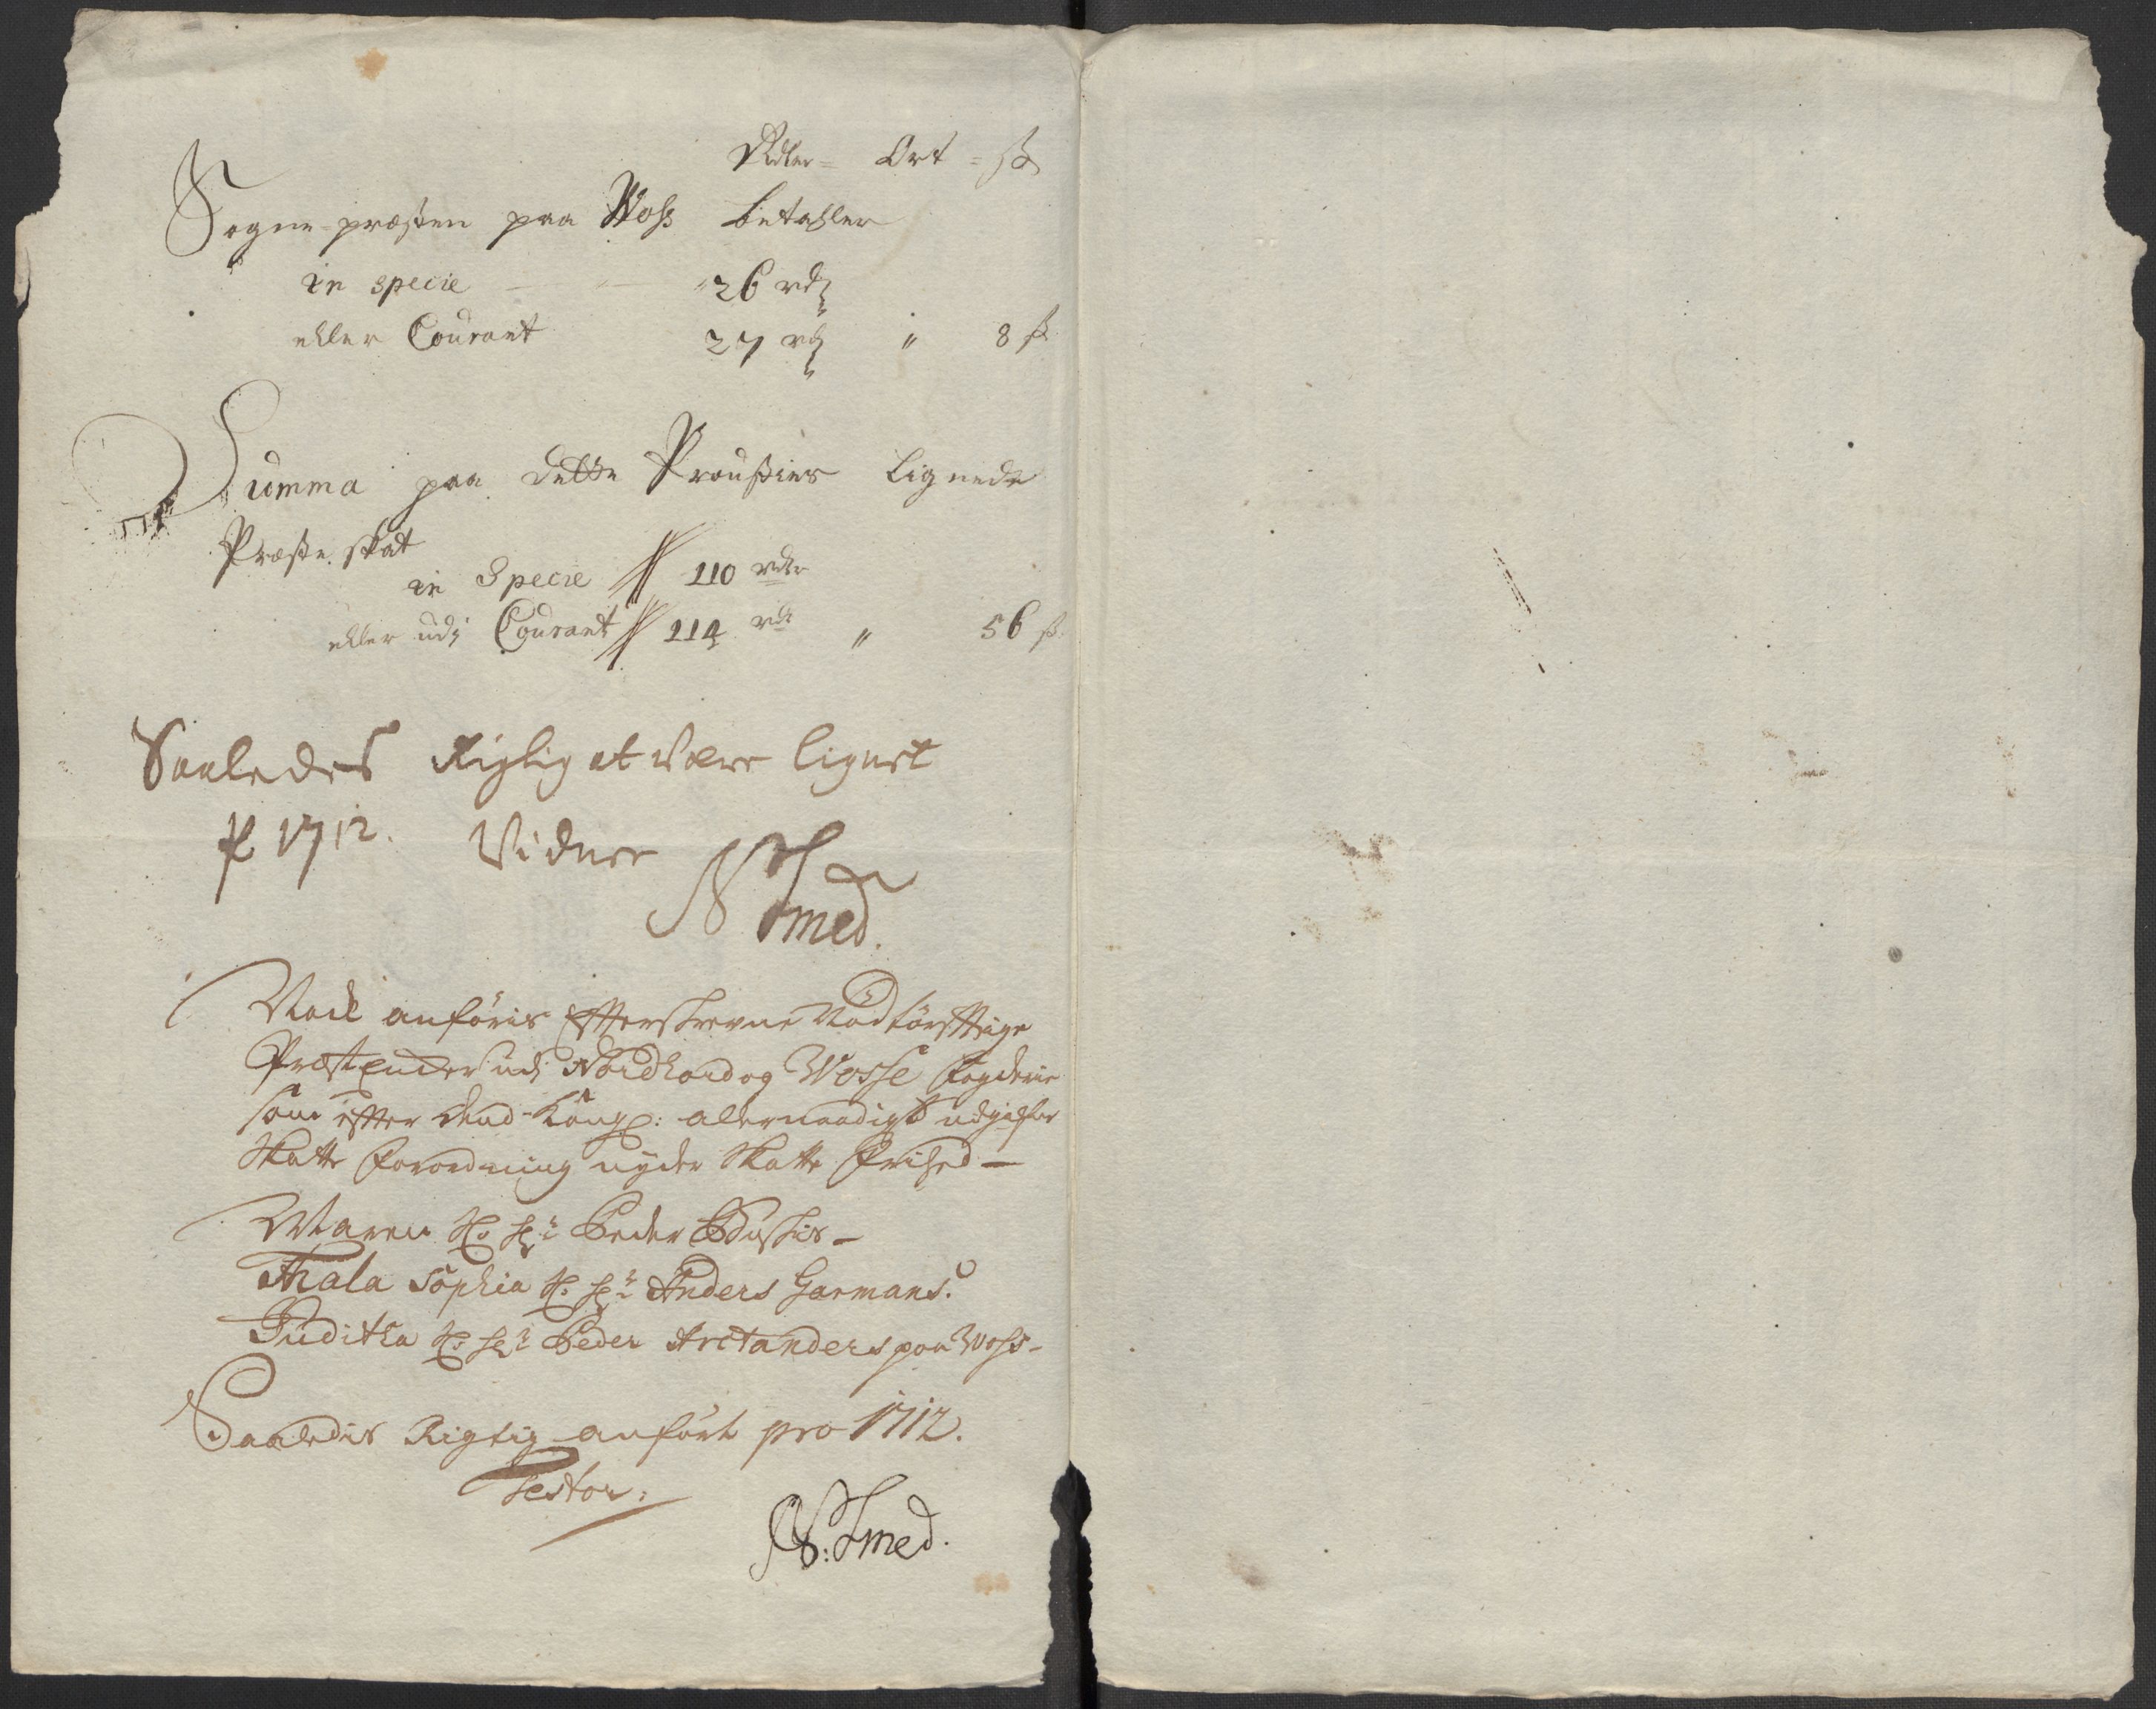 Rdler = Ort = ß
Sogne-præsten paa Woss betahler
in specie 26 rdr
eller Courant 27 rdr " 8 ß
Summa paa dette Prousties lignede
Præste skat
in Specie 110 rdlr
eller udj Courant 114 rdr " 56 ß
Saaledes Rigtig at være lignet
P 1712. Vidner
N Smed.
Noch anföris Efterskrevne Nödtörfftige
Præst Encker udj Nordhord og Wosse Fogderie
som efter dend Kongl: allernaadigst udgifne
Skatte Forordning nyder Skatte Frihed –
Maren H. Sl: Peder
Thala Sophia H. Sl: Anders Garmans.
Juditha H. Sl: Peder Arctanders paa Woss –
Saaledis Rigtig anfört pro 1712.
Testor:
N: Smed.